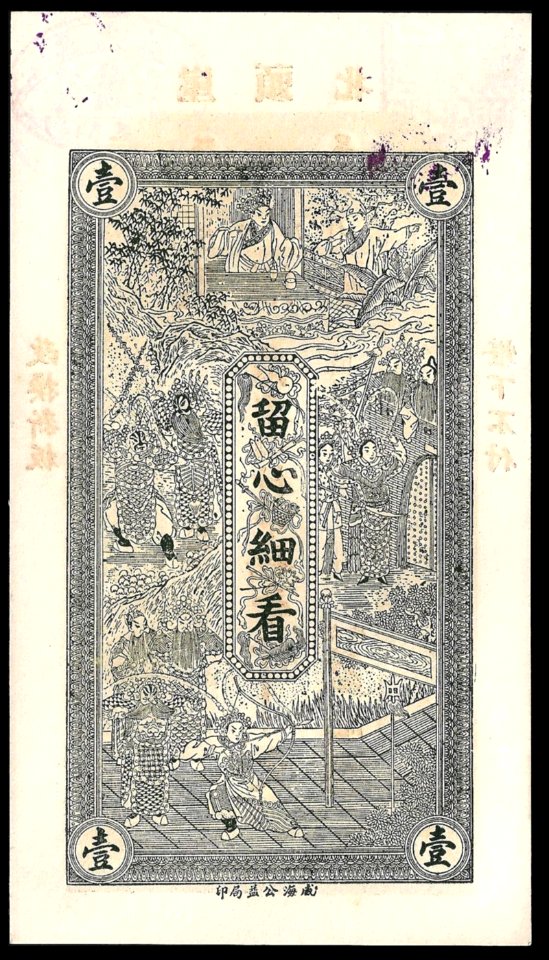 壹
壹
留心細看
壹
壹
威海公益局印